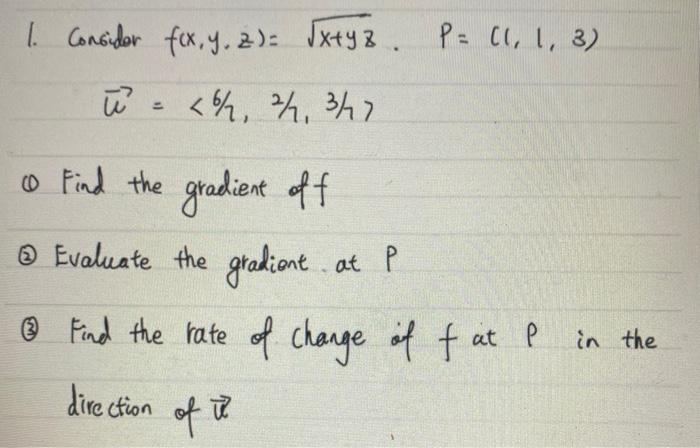 1. Consider f(x, y, z) = √x+yz . P = (1, 1, 3)
u⃗ = <6/7, 2/7, 3/7>
① Find the gradient of f
② Evaluate the gradient at P
③ Find the rate of change of f at P in the
direction of u⃗